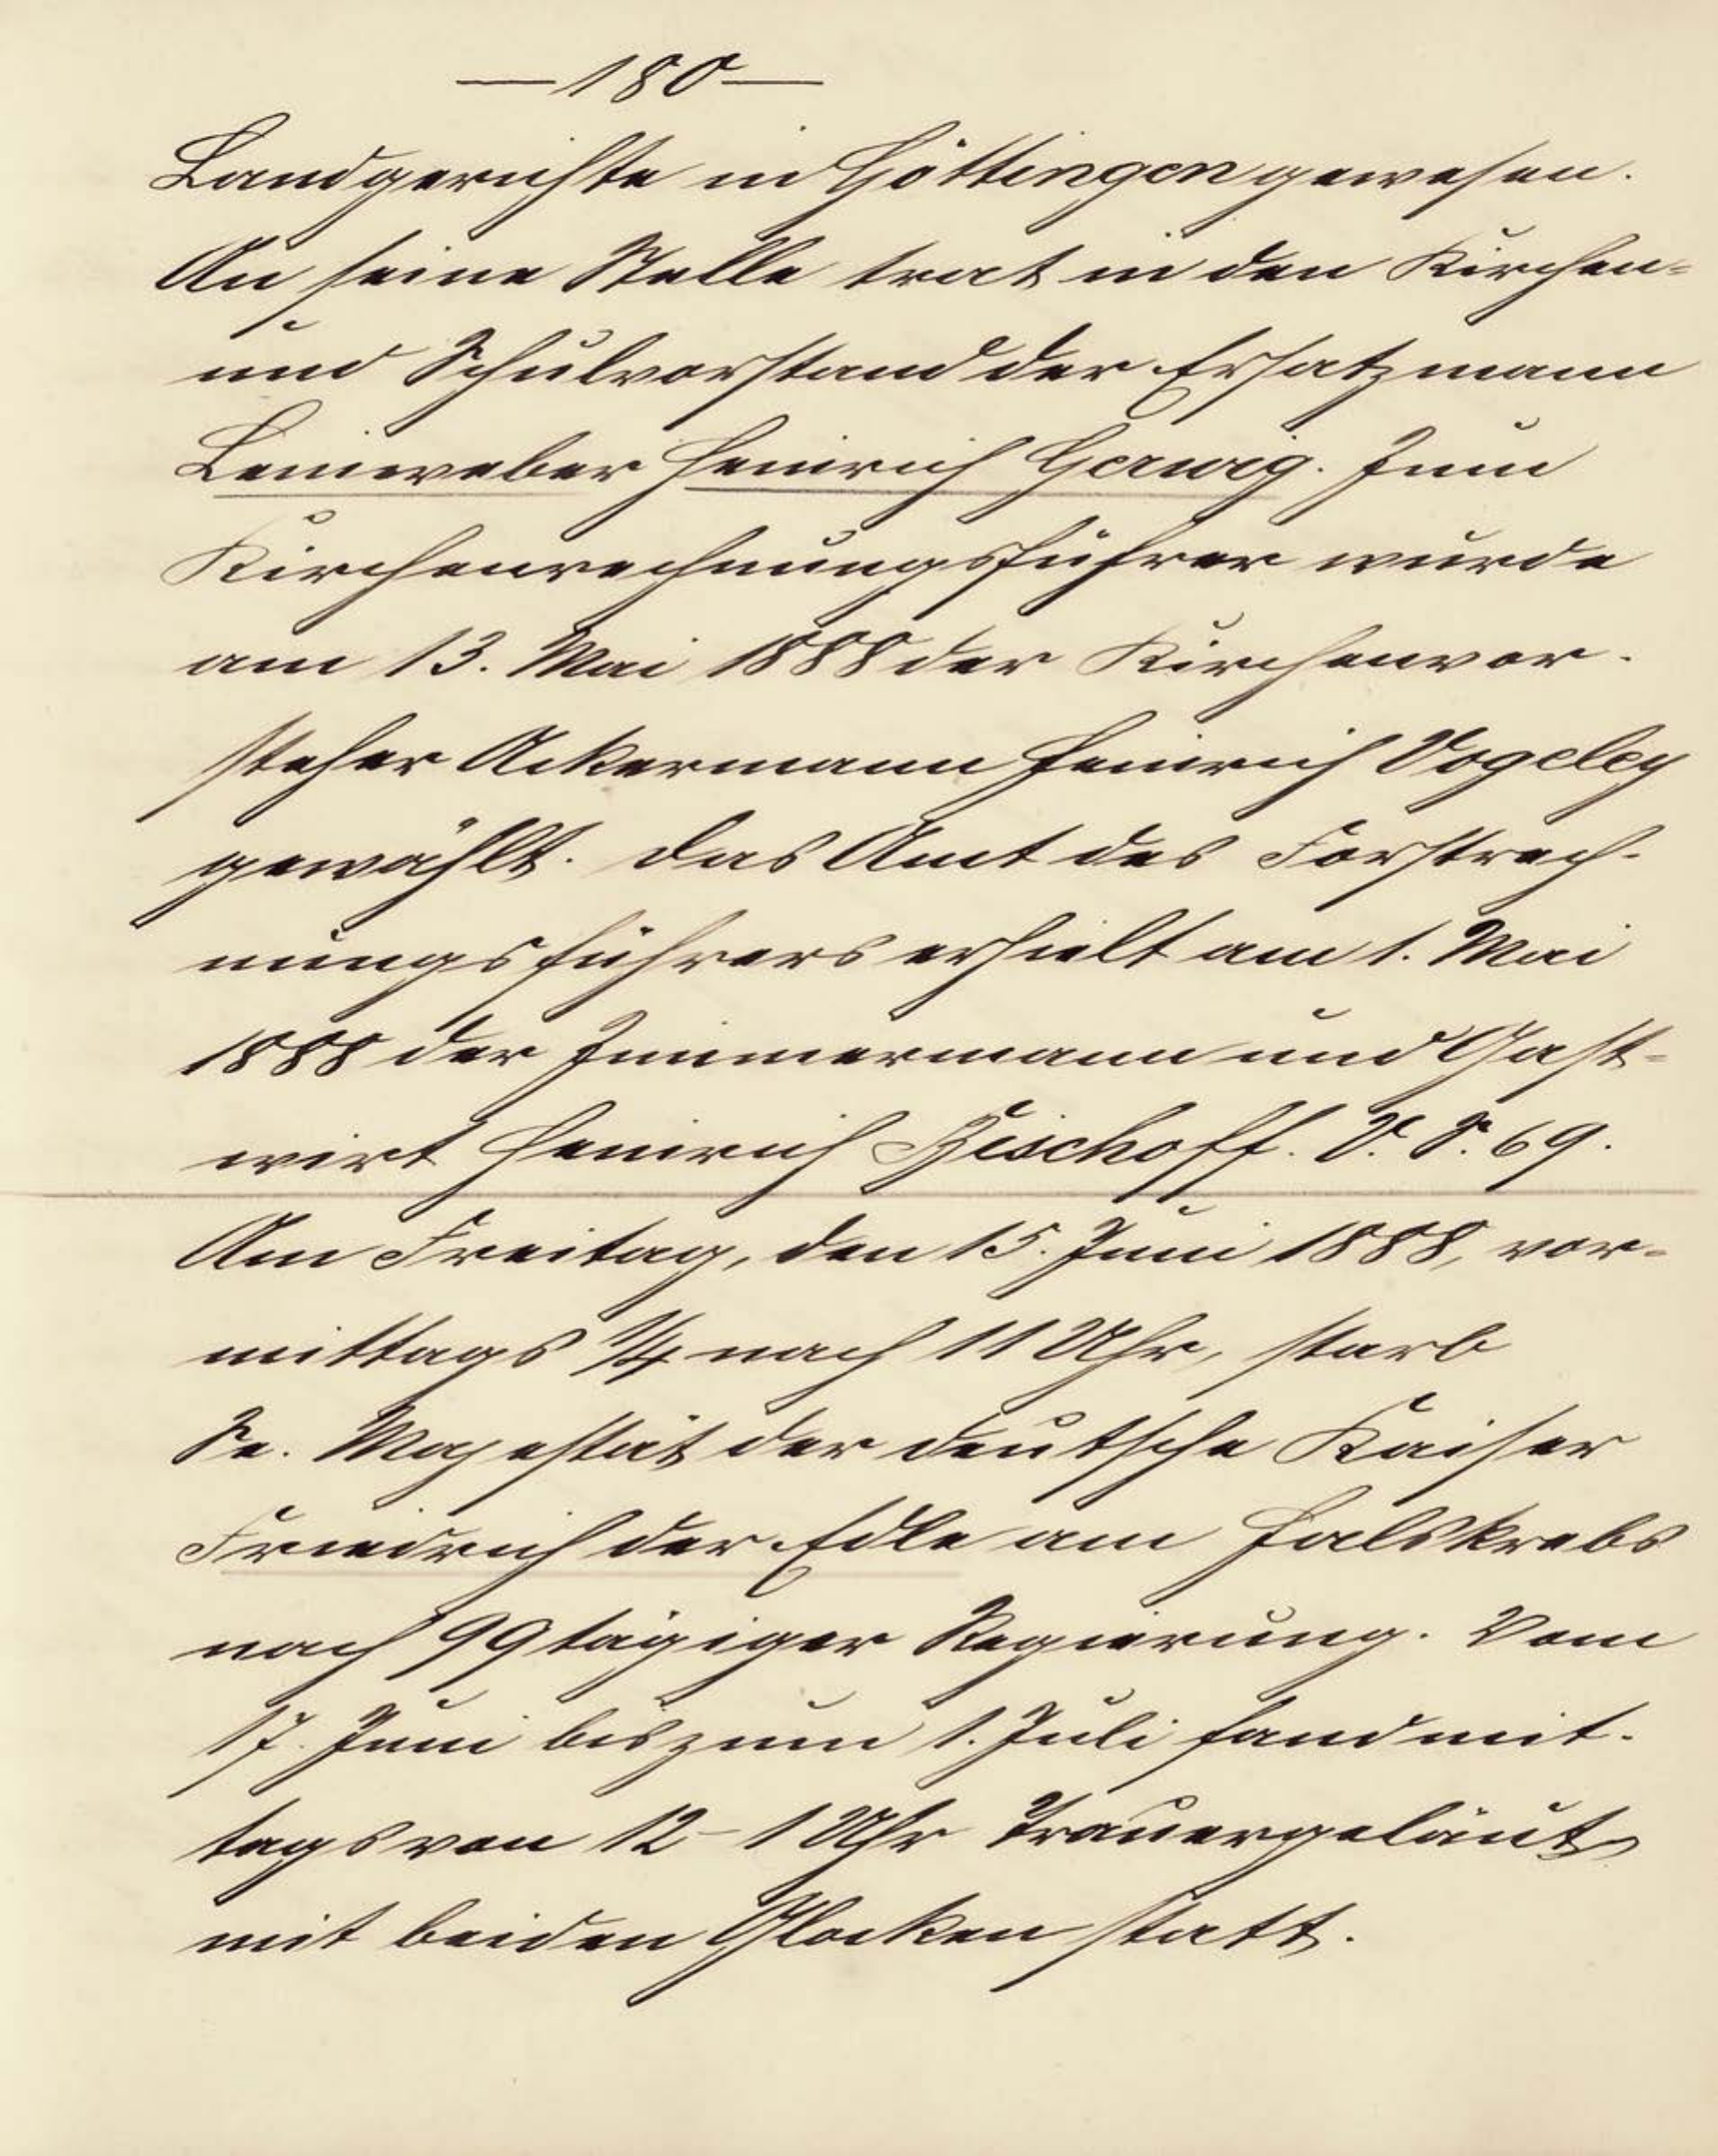 — 180 —
Landgerichte in Göttingen gewesen.
An seine Stelle trat in den Kirchen-
und Schulvorstand der Ersatzmann
Leineweber Heinrich Gerwig. Zum
Kirchenrechnungsführer wurde
am 13. Mai 1888 der Kirchenvor-
steher Ackermann Heinrich Vogeley
gewählt. Das Amt des Forstrech-
nungsführers erhielt am 1. Mai
1888 der Zimmermann und Gast-
wirt Heinrich Bischoff. V. S. 69.
Am Freitag, den 15. Juni 1888, vor-
mittags 1/4 nach 11 Uhr, starb
Se. Majestät der deutsche Kaiser
Friedrich der Edle am Halskrebs
nach 99tägiger Regierung. Vom
17. Juni bis zum 1. Juli fand mit-
tags von 12 - 1 Uhr Trauergeläut
mit beiden Glocken statt.